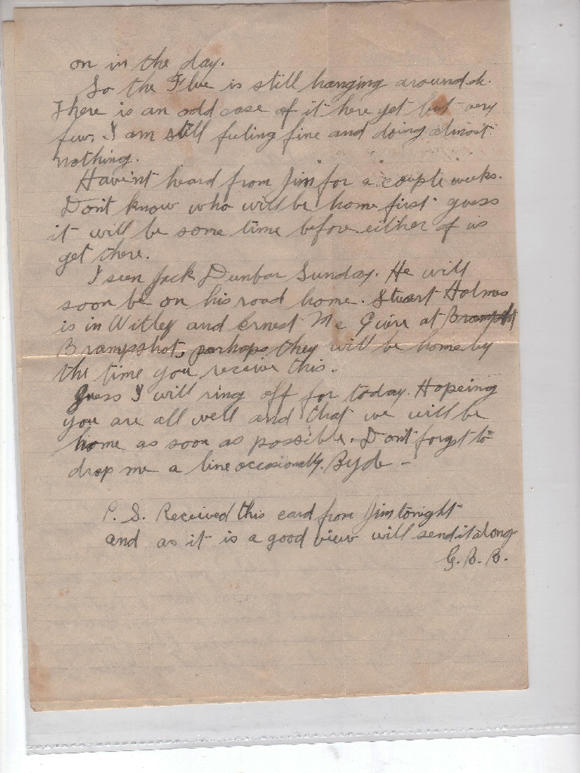 on in the day.
So the Flue is still hanging around
There is an odd case of it here yet but very
few. I am still feeling fine and doing almost
nothing.
Havent heard from Jim for a couple weeks.
Dont know who will be home first guess
it will be some time before either of us
get there.
I seen Jack Dunbar Sunday. He will
soon be on his road home. Stuart Holmes
is in Witley and Ernest Mc at
Brampshot, perhaps they will be home by
the time you receive this.
Guess I will ring off for today. Hopeing
you are all well and that we will be
home as soon as possible. Dont forget to
drop me a line occasionally.
P.S. Received this card from Jim tonight
and as it is a good view will send it along
G. B. B.